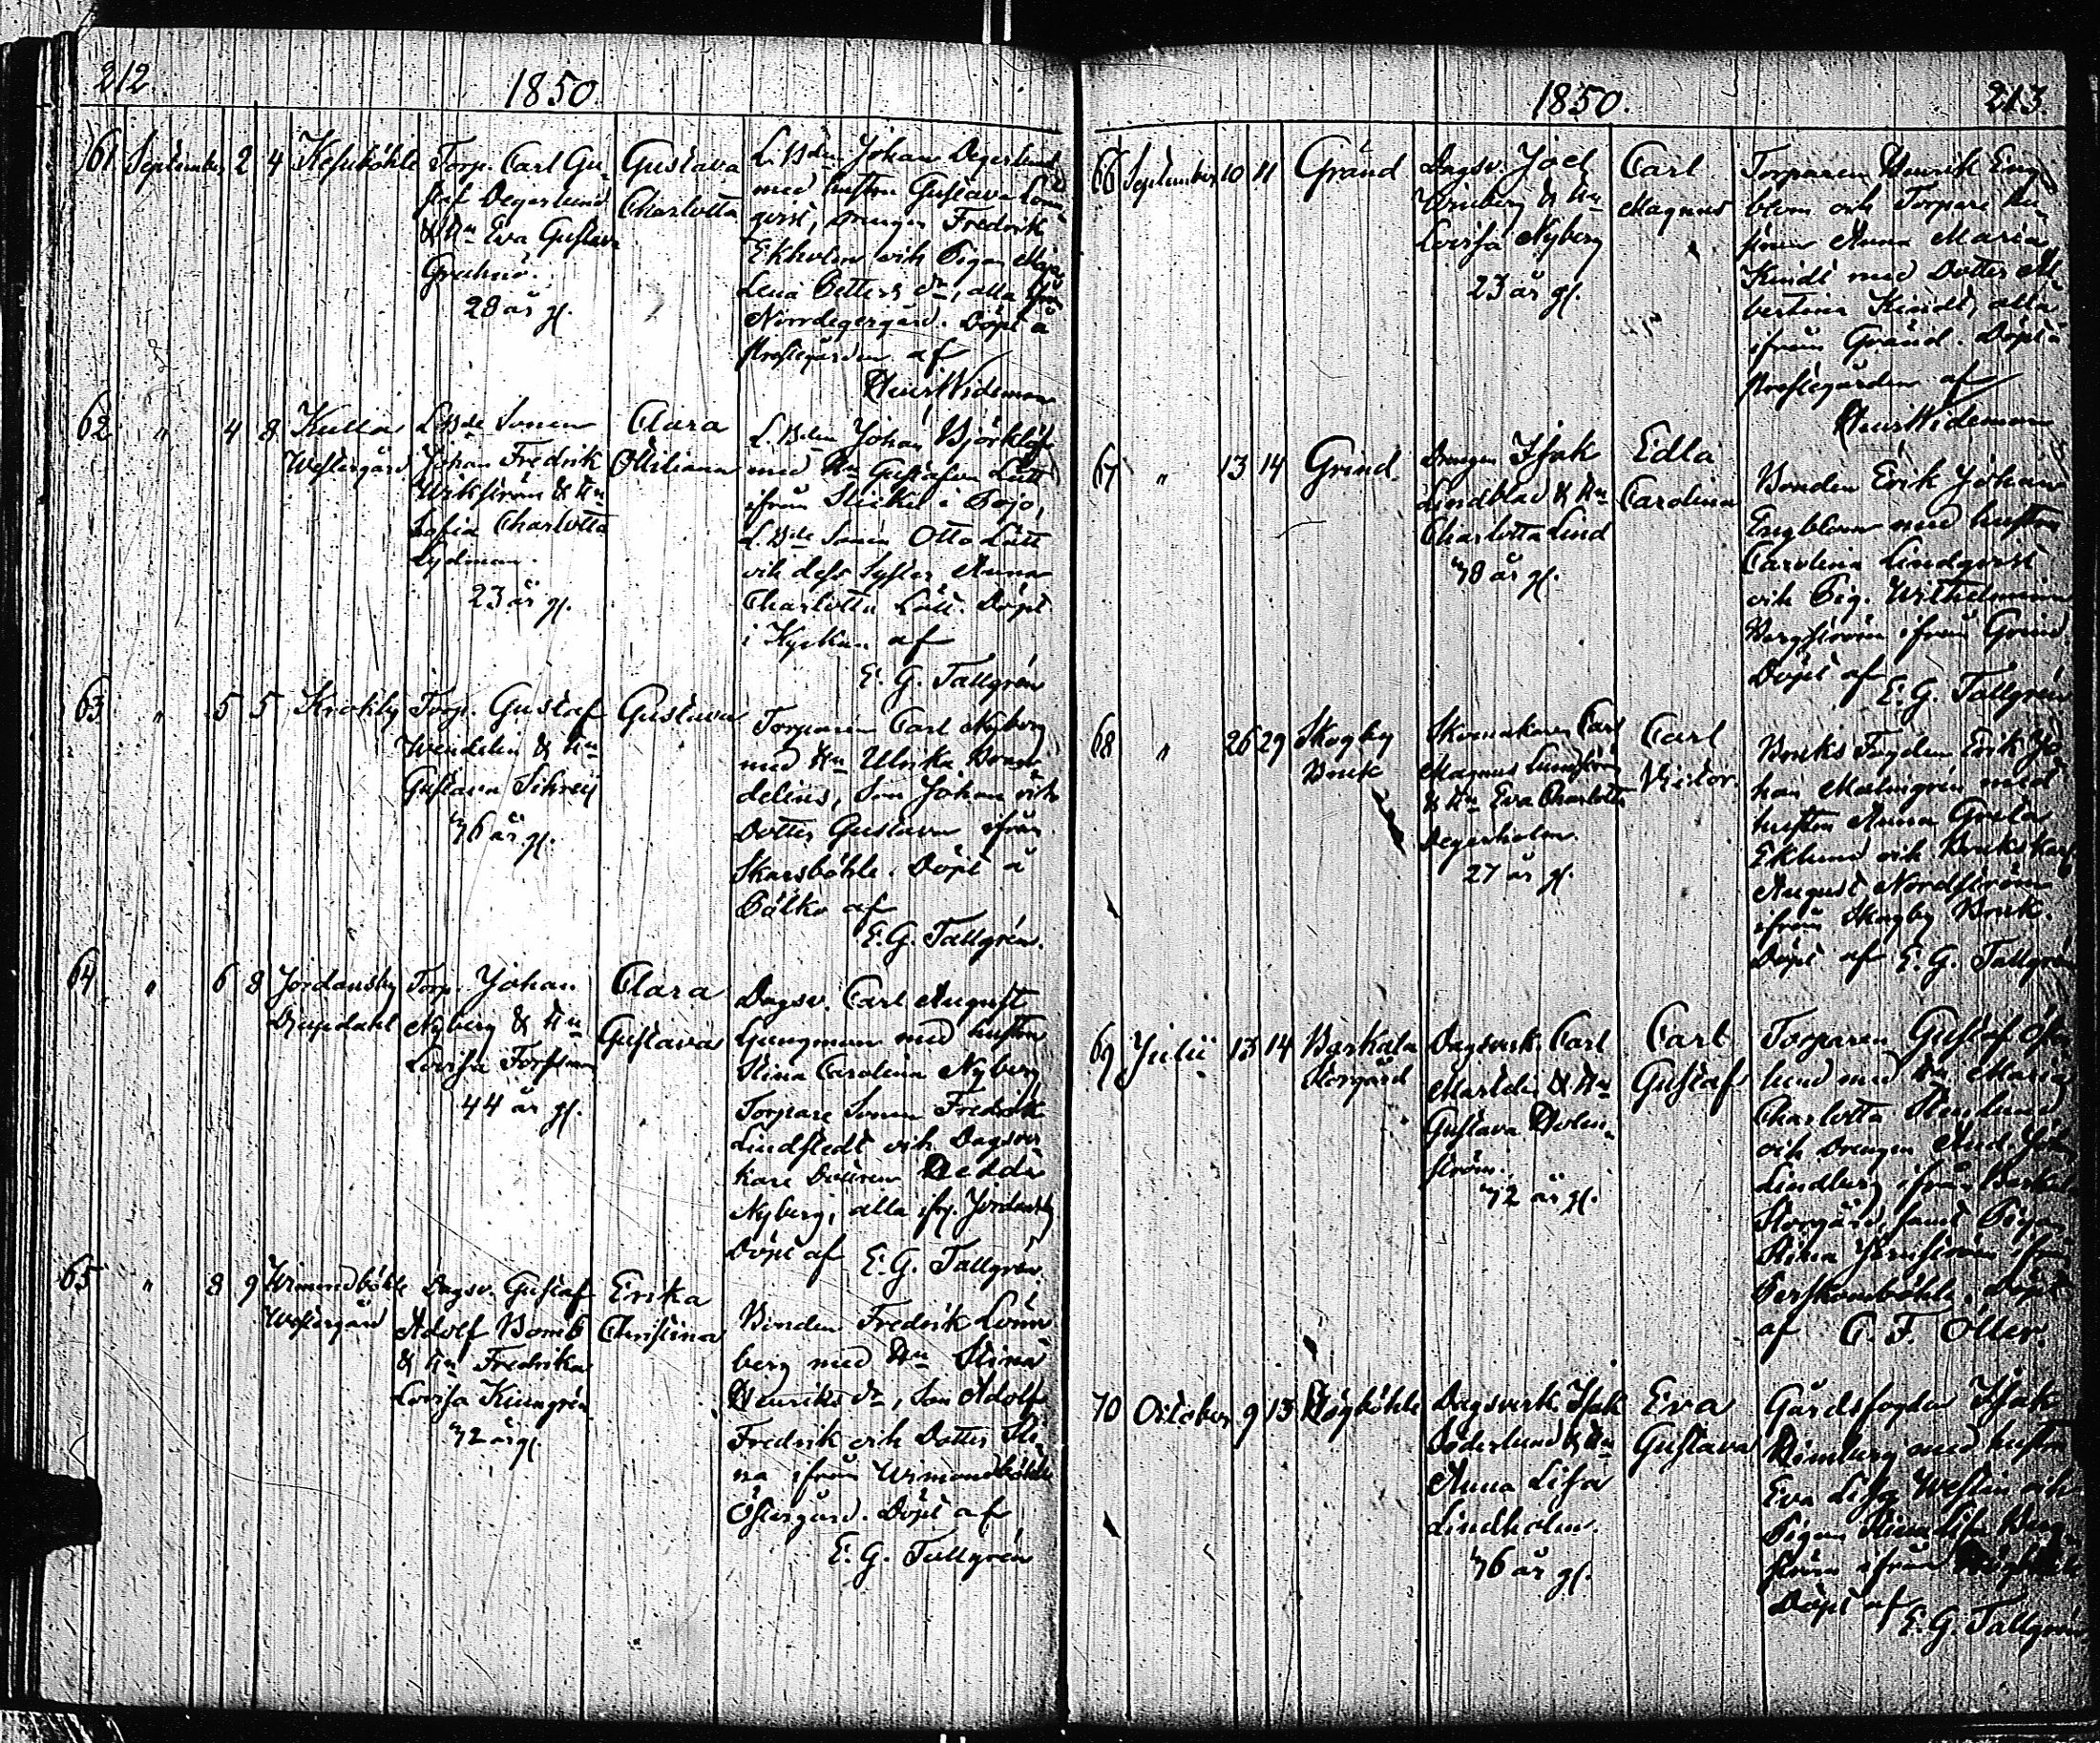 212
1850.
61 September 2 4
Torp. Carl Gu-
staf Degerlund
& Hu Eva Gustava
28 år gl.
Gustava
Charlotta
L. Bden Johan Degerlund
med hustru Gustava Lönn-
qvist, drengen Fredrik
Ekholm och Pigan Maja
Lena Petters dr, alla från
Norrdegergård. Döpt å
Prestegården af
Henr Wideman
62 " 4 8 Kulla
Westergård
L Bde Sonen
Johan Fredrik
Wikström & Hu
Sofia Charlotta
Lydman.
23 år gl.
Clara
Ottiliana
L. Bden Johan Björklöf
med Hu Gustafva Lätt
ifrån Slicko i Pojo,
L. Bde Sonen Otto Lätt
och dess Syster Anna
Charlotta Lätt. Döpt
i Kyrkan af
E. G. Tallgrén
63 " 5 5 Krokby
Torp. Gustaf
Wendelin & Hu
Gustava Schrey
36 år gl.
Gustava
Torparen Carl Nyberg
med Hu Ulrika
delius, Son Johan och
Dotter Gustava ifrån
Skarsböhle. Döpt å
Pölko af
E. G. Tallgrén.
64 " 6 8 Jordansby
Djupdahl
Torp. Johan
Nyberg & Hu
Lovisa Forssman
44 år gl.
Clara
Gustava
Dagsv. Carl August
Ljungman med hustru
Stina Carolina Nyberg
Torpare Sonen Fredrik
Lindstedt och Dagsver
kare Dottren Hedda
Nyberg, alla ifr. Jordansby
Döpt af E. G. Tallgrén.
65 " 8 9 Wimondböhle
Westergård
Dagsv. Gustaf
Adolf Bomb
& Hu Fredrika
Lovisa
32 år gl.
Erika
Christina
Bonden Fredrik Lönn
berg med Hu Stina
Henriks dr, Son Adolf
Fredrik och Dotter Sti-
na ifrån Wimondböhle
Östergård. Döpt af
E. G. Tallgrén
1850.
213.
66 September 10 11 Gränd
Dagsv. Joel
Winberg & Hu
Lovisa Nyberg
23 år gl.
Carl
Magnus
Torparen Henrik Eng-
blom och Torpare Hu-
strun Anna Maria
Kindt med Dotter Al-
bertina Kindt, alla
ifrån Gränd. Döpt å
Prestegården af
Henr Wideman
67 " 13 14 Grind.
Drengen Isak
Lindblad & Hu
Charlotta Lind
38 år gl.
Edla
Carolina
Bonden Erik Johan
Engblom med hustru
Carolina Lindqvist
och Pig. Wilhelmina
Bergström ifrån Grind
Döpt af
E. G. Tallgrén
68 " 26 29 Skogby
Bruk
Skomakaren Carl
Magnus Sundström
& Hu Eva Charlotta
Degerholm.
27 år gl.
Carl
Victor.
Bruks Fogden Erik Jo-
han Malmgrén med
hustru Anna Greta
Eklund och Bruks Karl
August Nordström
ifrån Skogby Bruk.
Döpt af E. G. Tallgrén
69 Julii 13 14 Baskala
Storgård
Dagsverk. Carl
Martelin & Hu
Gustava Holm-
ström.
32 år gl.
Carl
Gustaf
Torparen Gustaf Öster
lund med Hu Maria
Charlotta Stenlund
och Drengen And. Joh.
Lindberg ifrån Baskala
Storgård, samt Pigan
Stina ifrån
Döpt
af C. F. Öller.
70 October 9 13 Högböhle
Dagsverk. Isak
Söderlund & Hu
Anna Lisa
Lindholm.
36 år gl.
Eva
Gustava
Gårdsfogden Isak
med hustru
Eva Lisa Westin och
Pigan Stina Lisa Berg
ström ifrån Högböhle
Döpt af
E. G. Tallgrén